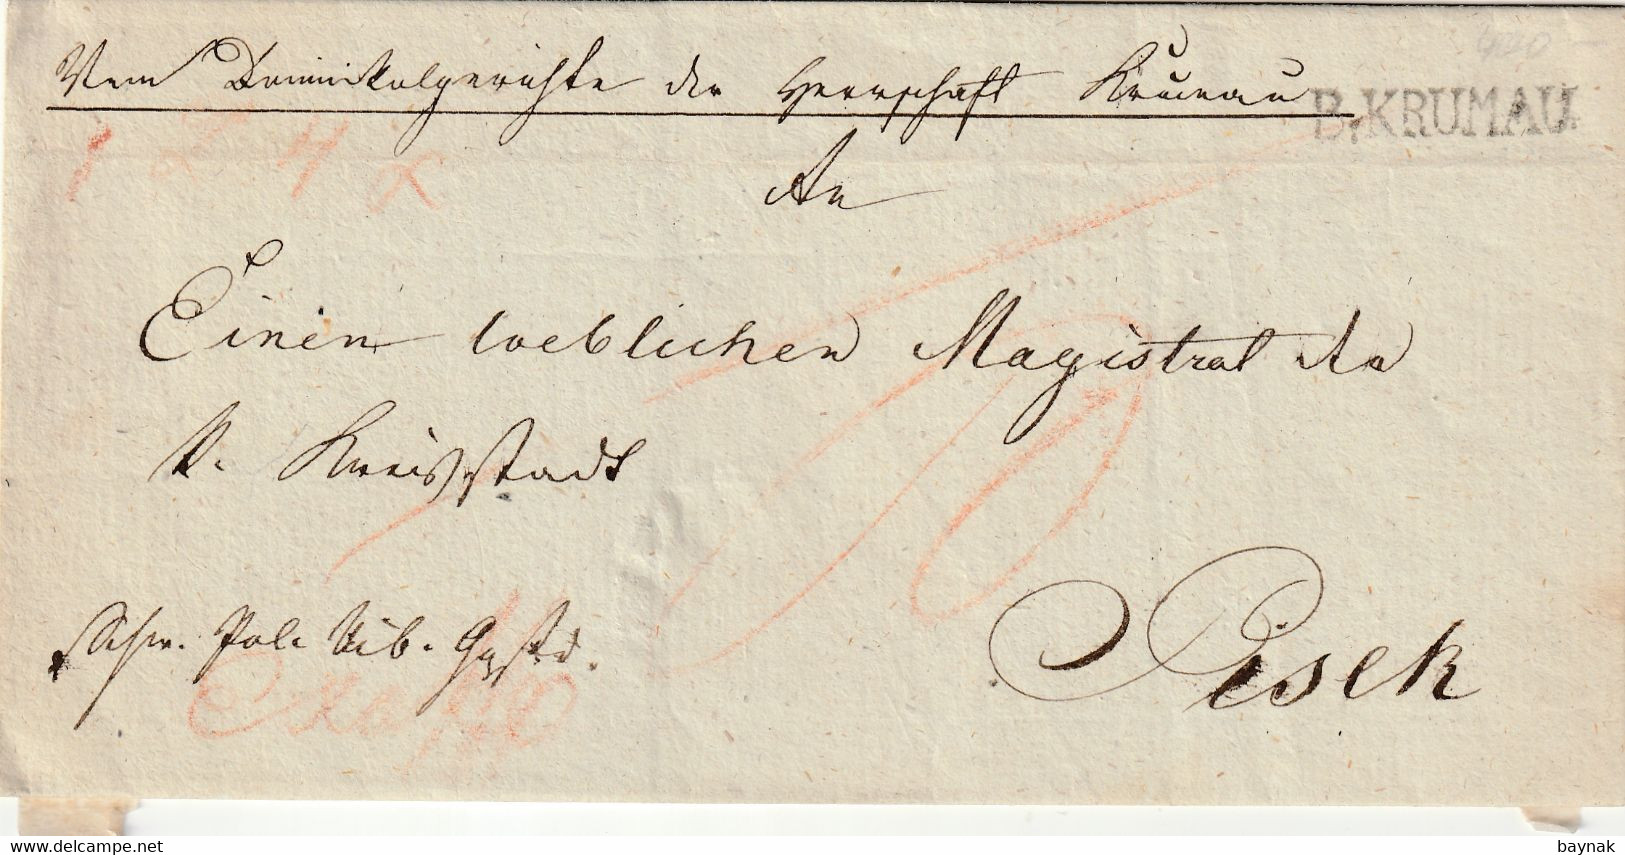 Vom Dominikalgerichte der Herrschaft Krumau
B. KRUMAU.
An
Einen loeblichen Magistrat der
k. Kreisstadt
Pisek
delcampe.net
baynak